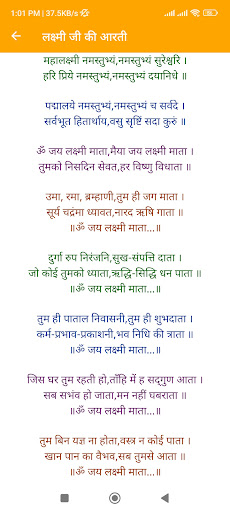 1:01 PM | 37.5KB/s
लक्ष्मी जी की आरती
महालक्ष्मी नमस्तुभ्यं,नमस्तुभ्यं सुरेश्वरि ।
हरि प्रिये नमस्तुभ्यं,नमस्तुभ्यं दयानिधे ॥
पद्मालये नमस्तुभ्यं,नमस्तुभ्यं च सर्वदे ।
सर्वभूत हितार्थाय,वसु सृष्टिं सदा कुरुं ॥
ॐ जय लक्ष्मी माता,मैया जय लक्ष्मी माता ।
तुमको निसदिन सेवत,हर विष्णु विधाता ॥
उमा, रमा, ब्रम्हाणी,तुम ही जग माता ।
सूर्य चद्रंमा ध्यावत,नारद ऋषि गाता ॥
॥ॐ जय लक्ष्मी माता...॥
दुर्गा रुप निरंजनि,सुख-संपत्ति दाता ।
जो कोई तुमको ध्याता,ऋद्धि-सिद्धि धन पाता ॥
॥ॐ जय लक्ष्मी माता...॥
तुम ही पाताल निवासनी,तुम ही शुभदाता ।
कर्म-प्रभाव-प्रकाशनी,भव निधि की त्राता ॥
॥ॐ जय लक्ष्मी माता...॥
जिस घर तुम रहती हो,ताँहि में ह सद्‌गुण आता ।
सब सभंव हो जाता,मन नहीं घबराता ॥
॥ॐ जय लक्ष्मी माता...॥
तुम बिन यज्ञ ना होता,वस्त्र न कोई पाता ।
खान पान का वैभव,सब तुमसे आता ॥
॥ॐ जय लक्ष्मी माता...॥